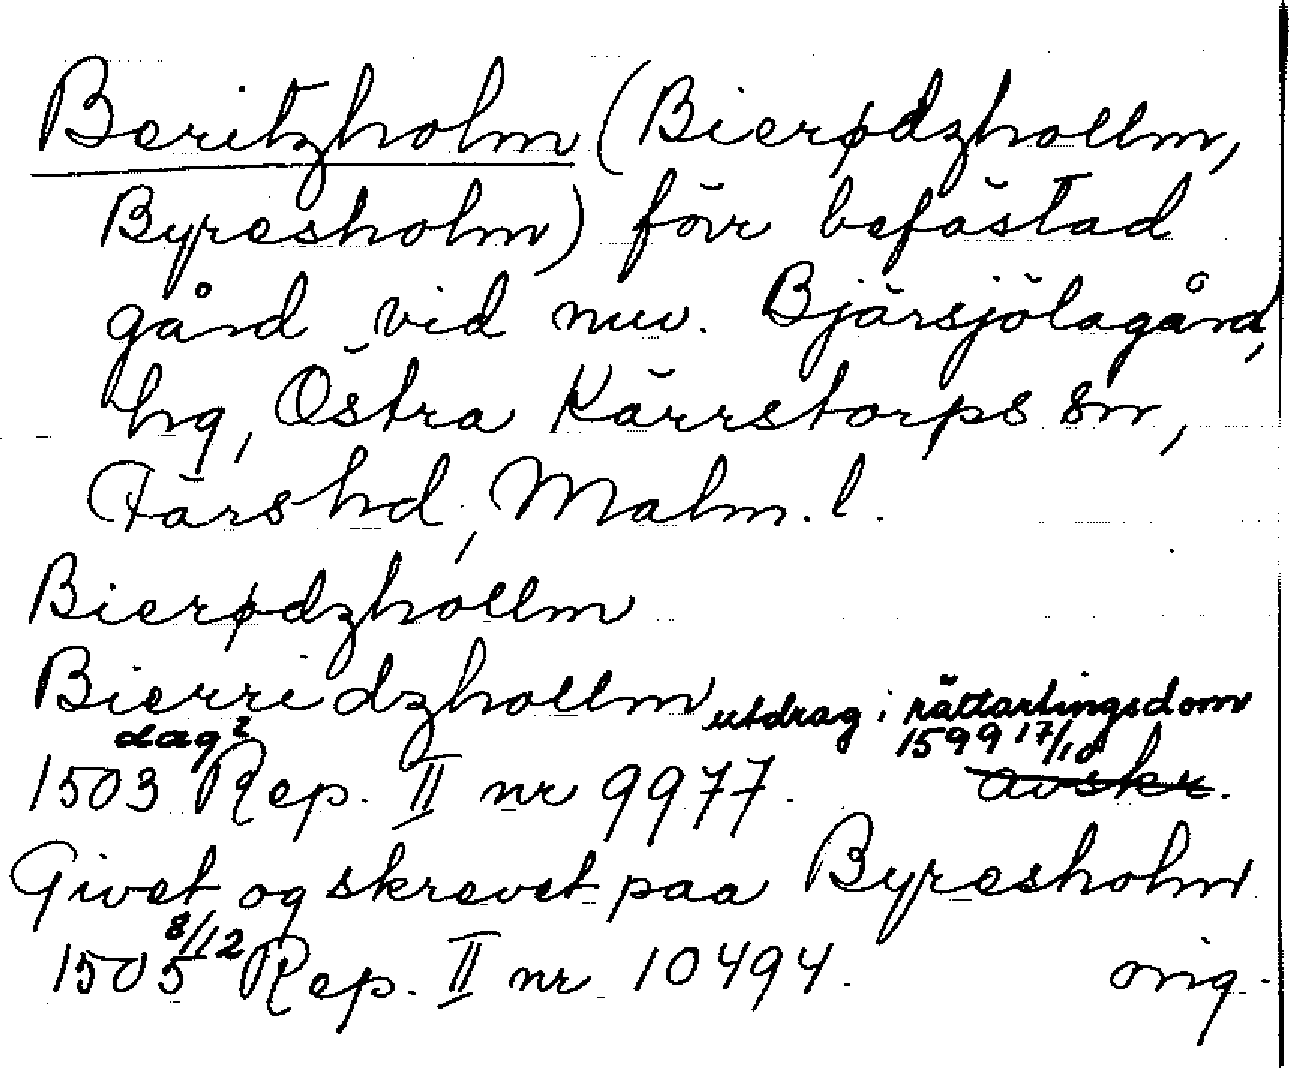 Beritzholm (Bierødzhollm,
Byresholm) förr befästad
gård vid nuv. Bjärsjölagård,
hg, Östra Kärrstorps sn,
Färs hd, Malm. l.
Bierødzhollm
Bierridzhollm utdrag i rättartingsdom
1599 17/10
dag?
1503 Rep. II nr 9977. avskr.
Givet og skrevet paa Byresholm
1505 8/12 Rep. II nr 10494. orig.